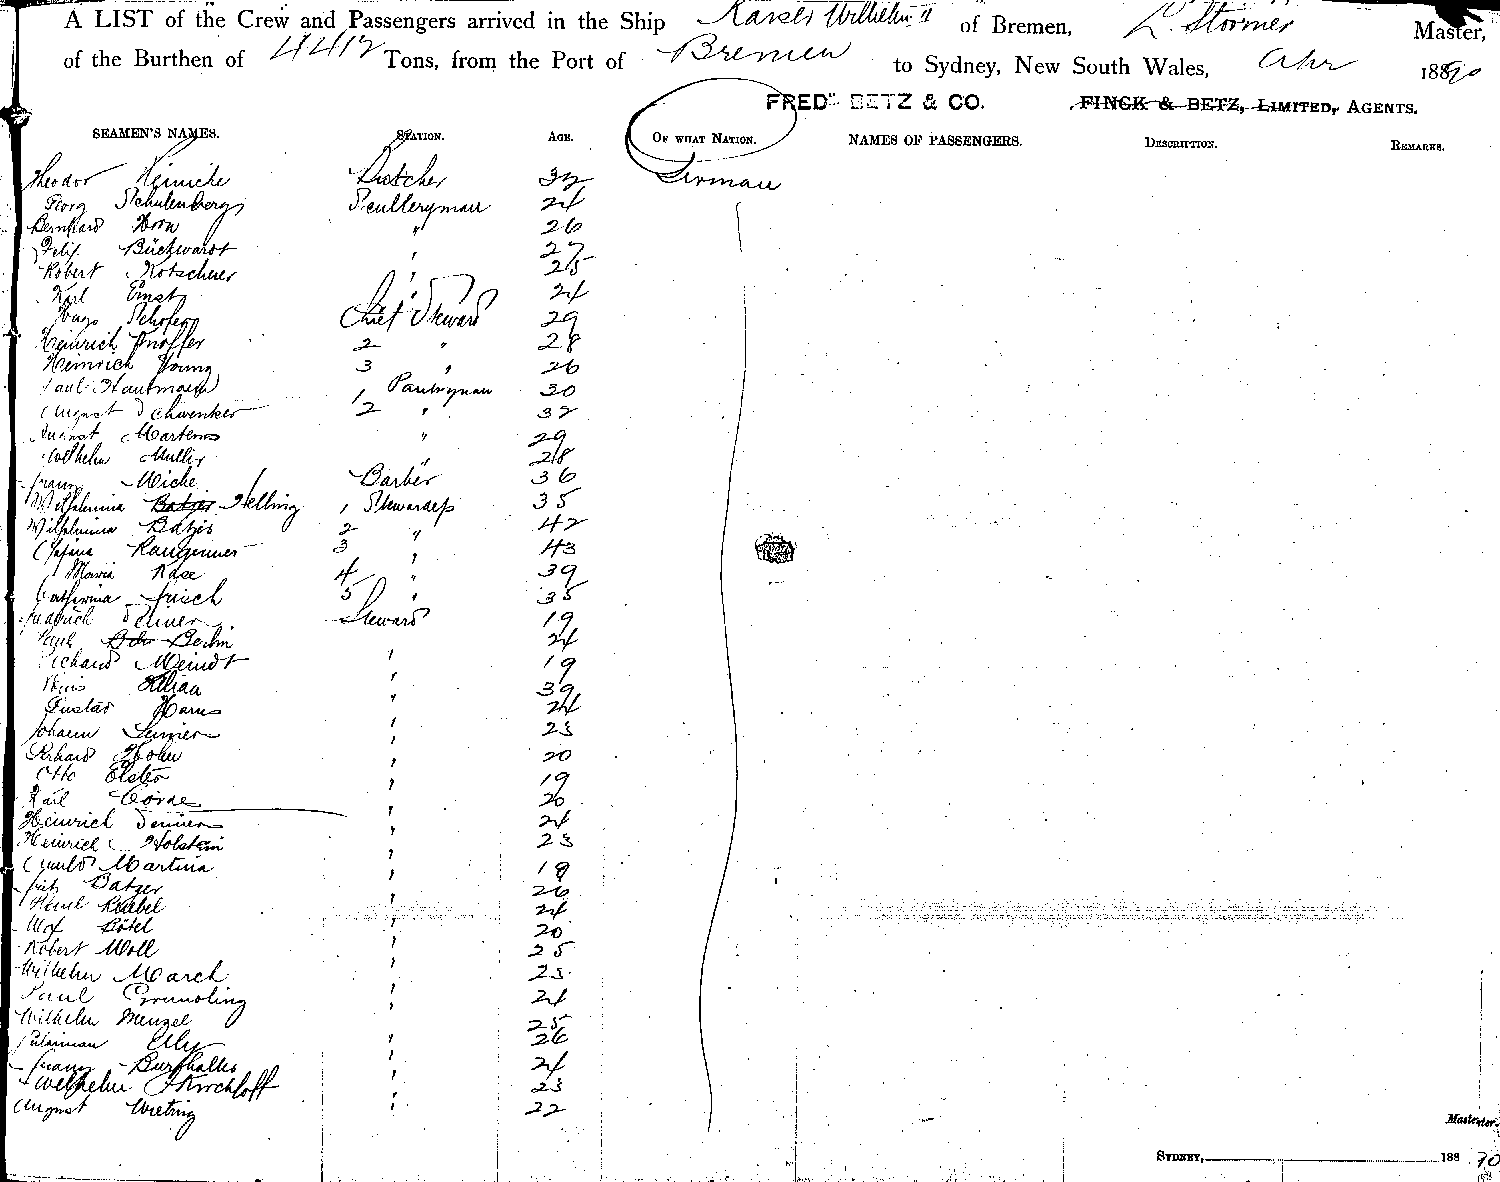 A LIST of the Crew and Passengers arrived in the Ship Kaiser Wilhelm II of Bremen, L. Störmer Master,
of the Burthen of 4412 Tons, from the Port of Bremen to Sydney, New South Wales, 1890
FREDK BETZ & CO. FINCK & BETZ, LIMITED, AGENTS.
SEAMEN'S NAMES. STATION. AGE. OF WHAT NATION. NAMES OF PASSENGERS. DESCRIPTION. REMARKS.
Theodor Heiniche Butcher 32 German
Georg Schulenberg Sculleryman 24
Bernhard Horn " 26
Felix Bückwardt " 27
Robert Rotscheier " 25
Karl Ernst " 24
Hugo Schofer Chief Steward 29
Heinrich Knoffer 2 " 28
Heinrich Young 3 " 26
Paul Hautmann 1 Pantryman 30
August Schwenker 2 " 32
August Martens " 29
Wilhelm Muller " 28
Franz Miche Barber 36
Wilhelmina Batjer Helling 1 Stewardess 35
Wilhelmina Batjes 2 " 42
3 " 43
Maria Rase 4 " 39
Catharina Frisch 5 " 35
Fredrich Steward 19
Paul Berlin " 24
Richard Meindt " 19
Kilian " 39
Gustav Harns " 24
Johann " 23
Gerhard " 20
Otto Elster " 19
Karl Corde " 20
Heinrich " 24
Heinrich Holstein " 23
Martina " 19
Fritz Batzer " 26
Paul Kiebel " 24
Max Rötel " 20
Robert Moll " 25
Wilhelm March " 23
Paul Grundling " 24
Wilhelm Menzel " 25
" 26
Franz " 24
Wilhelm Kirchhoff " 23
August Wieting " 22
Master.
SYDNEY, 188 90